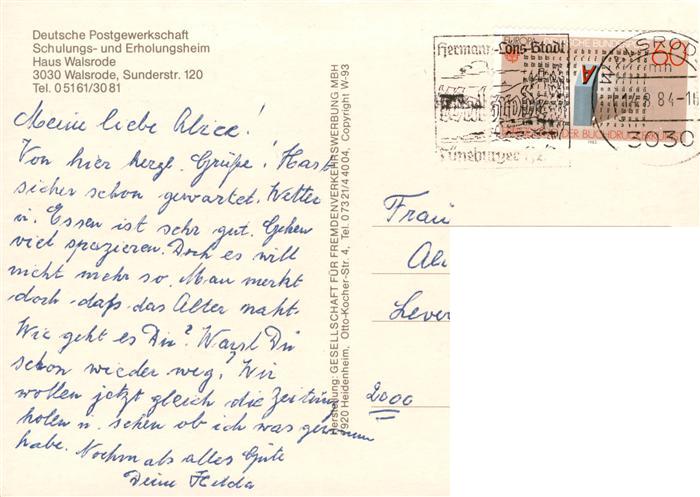 Deutsche Postgewerkschaft
Schulungs- und Erholungsheim
Haus Walsrode
3030 Walsrode, Sunderstr. 120
Tel. 05161/3081
Meine liebe Alice!
Von hier herzl. Grüße! Hast
sicher schon gewartet. Wetter
u. Essen ist sehr gut. Gehen
viel spazieren. Doch es will
nicht mehr so. Man merkt
doch, daß das Alter naht.
Wie geht es Dir? Warst Du
schon wieder weg? Wir
wollen jetzt gleich die Zeitung
holen u. sehen ob ich was gewonnen
habe. Nochmals alles Gute
Deine Helda
Herstellung: GESELLSCHAFT FÜR FREMDENVERKEHRSWERBUNG MBH
7920 Heidenheim, Otto-Kocher-Str. 4, Tel. 07321/44004, Copyright W-93
Hermann-Löns-Stadt
Lüneburger
EUROPA
60
BUCHDRUCK
1983
8.84-1
3030
Frau
Ali
Lever
2000